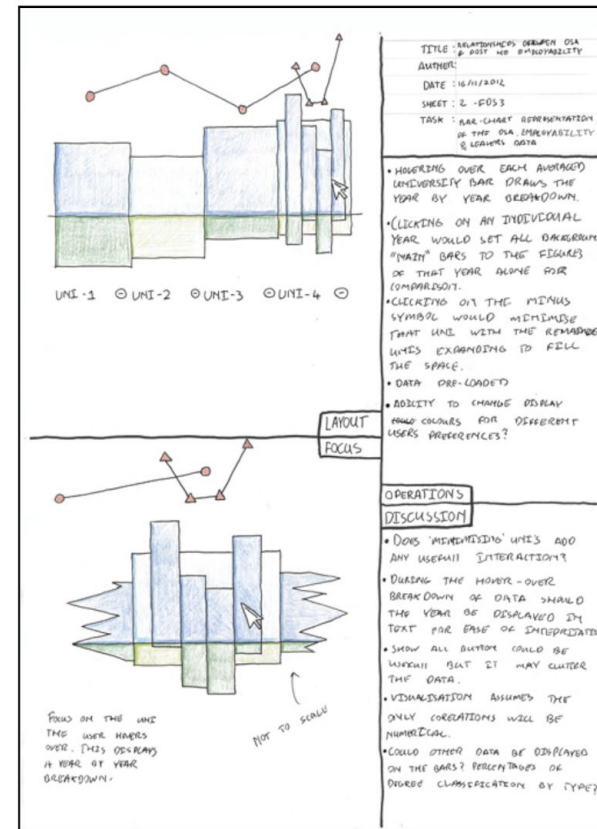 TITLE : RELATIONSHIPS BETWEEN OSA
& POST HE EMPLOYABILITY
AUTHOR:
DATE : 16/11/2012
SHEET : 2 - FDS3
TASK : BAR-CHART REPRESENTATION
OF THE OSA, EMPLOYABILITY
& LEAVERS DATA
• HOVERING OVER EACH AVERAGED
UNIVERSITY BAR DRAWS THE
YEAR BY YEAR BREAKDOWN.
• CLICKING ON AN INDIVIDUAL
YEAR WOULD SET ALL BACKGROUN
"MAIN" BARS TO THE FIGURES
OF THAT YEAR ALONE FOR
COMPARISON.
• CLICKING ON THE MINUS
SYMBOL WOULD MINIMISE
THAT UNI WITH THE
UNIS EXPANDING TO FILL
THE SPACE.
• DATA PRE-LOADED
• ABILITY TO CHANGE DISPLAY
COLOURS FOR DIFFERENT
USERS PREFERENCES?
UNI-1 ⊖ UNI-2 ⊖ UNI-3 ⊖ UNI-4 ⊖
LAYOUT
FOCUS
OPERATIONS
DISCUSSION
• DOES 'MINIMISING' UNI'S ADD
ANY USEFULL INTERACTION?
• DURING THE HOVER-OVER
BREAKDOWN OF DATA SHOULD
THE YEAR BE DISPLAYED IN
TEXT FOR EASE OF
• SHOW ALL BUTTON COULD BE
USEFULL BUT IT MAY CLUTTER
THE DATA.
• VISUALISATION ASSUMES THE
ONLY CORELATIONS WILL BE
NUMERICAL.
• COULD OTHER DATA BE DISPLAYED
ON THE BARS? PERCENTAGES OF
DEGREE CLASSIFICATION BY TYPE?
FOCUS ON THE UNI
THE USER HOVERS
OVER. THIS DISPLAYS
A YEAR BY YEAR
BREAKDOWN.
NOT TO SCALE